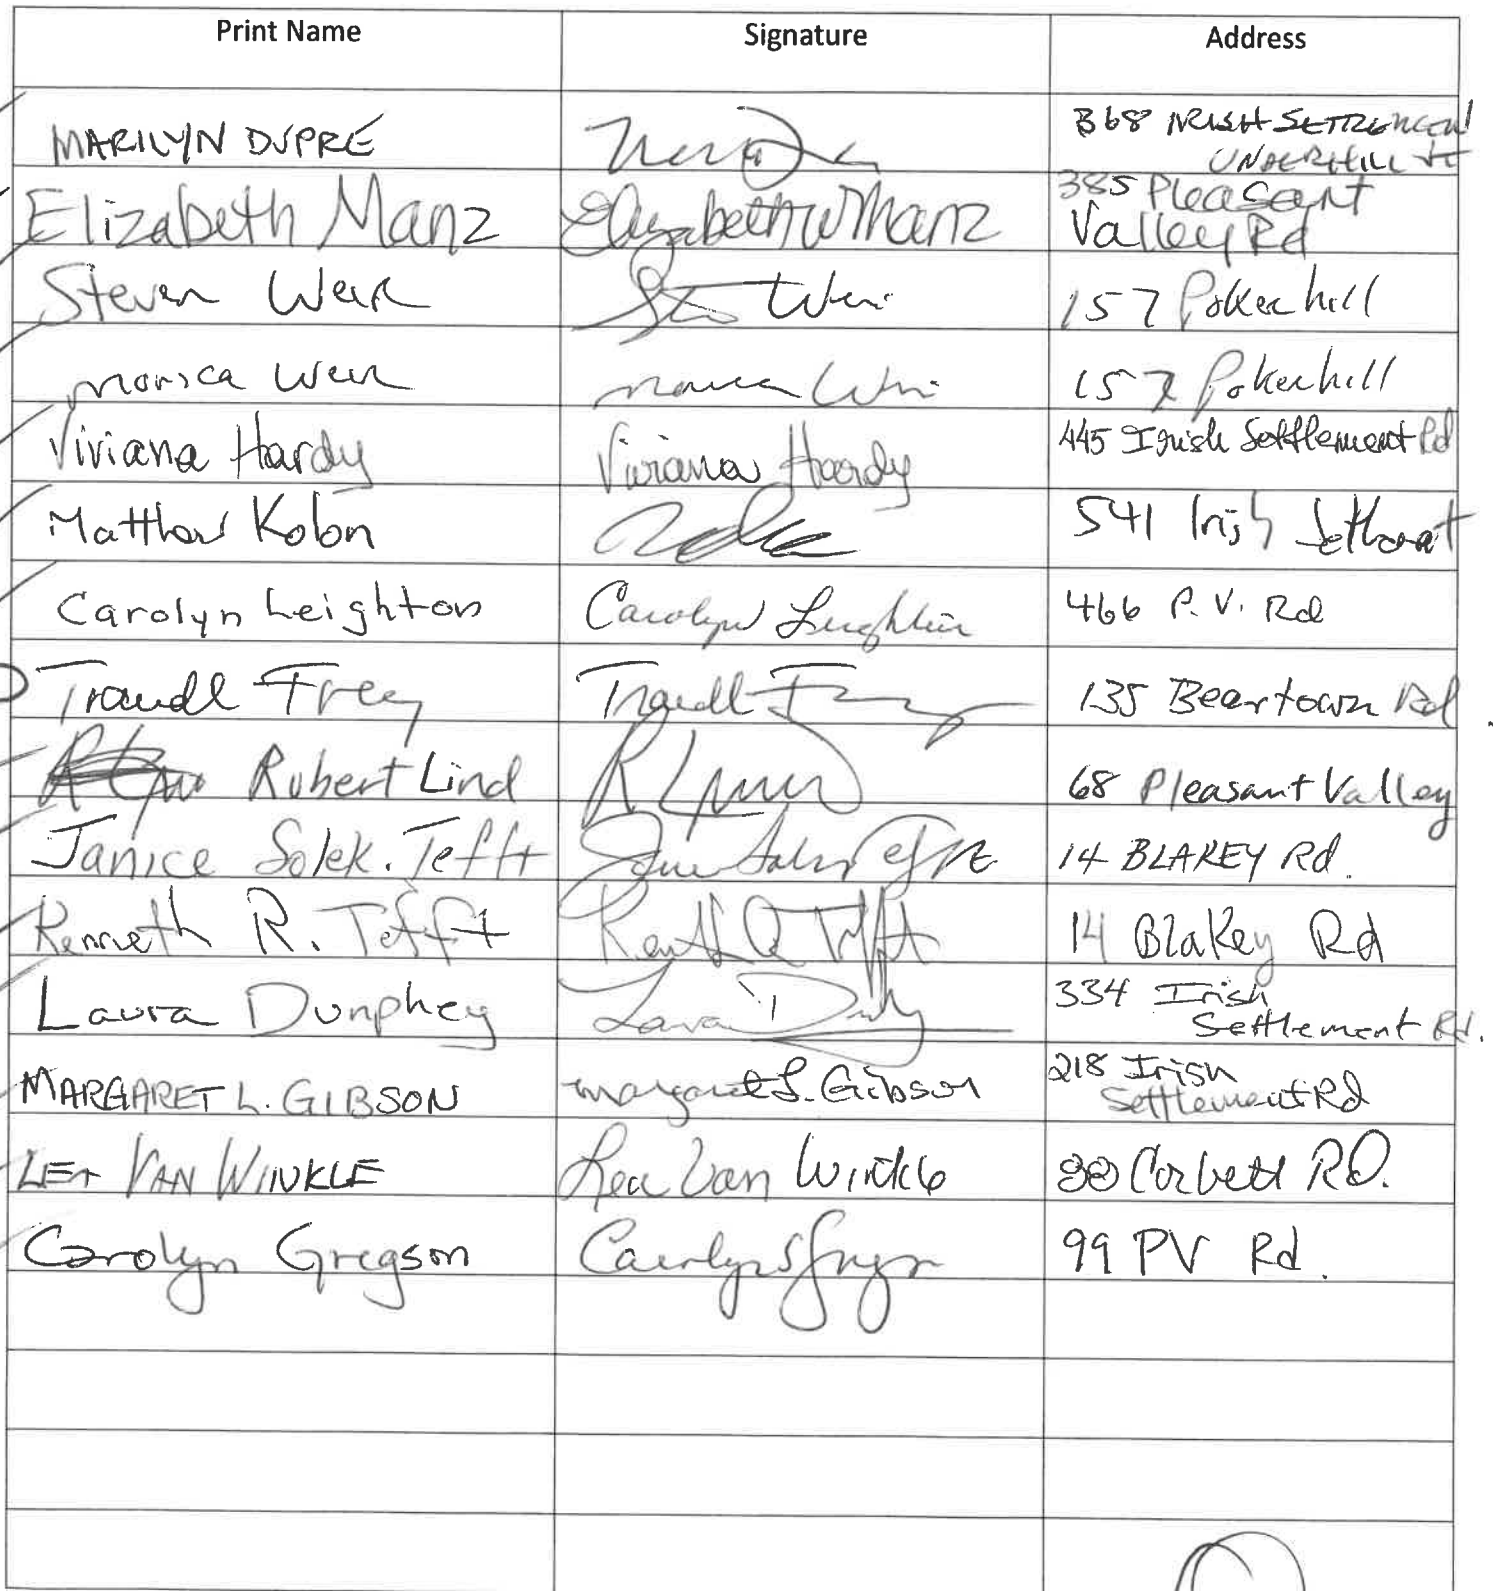 Print Name Signature Address
MARILYN DUPRE 368 IRISH SETTLEMENT
UNDERHILL VT
Elizabeth Manz Elizabeth W Manz 385 Pleasant
Valley Rd
Steven Weir 157 Pokerhill
Monica Weir 157 Pokerhill
Viviana Hardy Viviana Hardy 445 Irish Settlement Rd
Matthew Kolon 541 Irish Settlement
Carolyn Leighton Carolyn Leighton 466 P.V. Rd
Traudl Frey Traudl 135 Beartown Rd.
Robert Lind R Lind 68 Pleasant Valley
Janice Solek-Tefft 14 BLAKEY Rd.
Kenneth R. Tefft Kenneth R Tefft 14 Blakey Rd
Laura Dunphey Laura 334 Irish
Settlement Rd.
MARGARET L. GIBSON Margaret L. Gibson 218 Irish
Settlement Rd
LEA VAN WINKLE Lea Van Winkle Corbett RD.
Carolyn Gregson Carolyn 99 PV Rd.